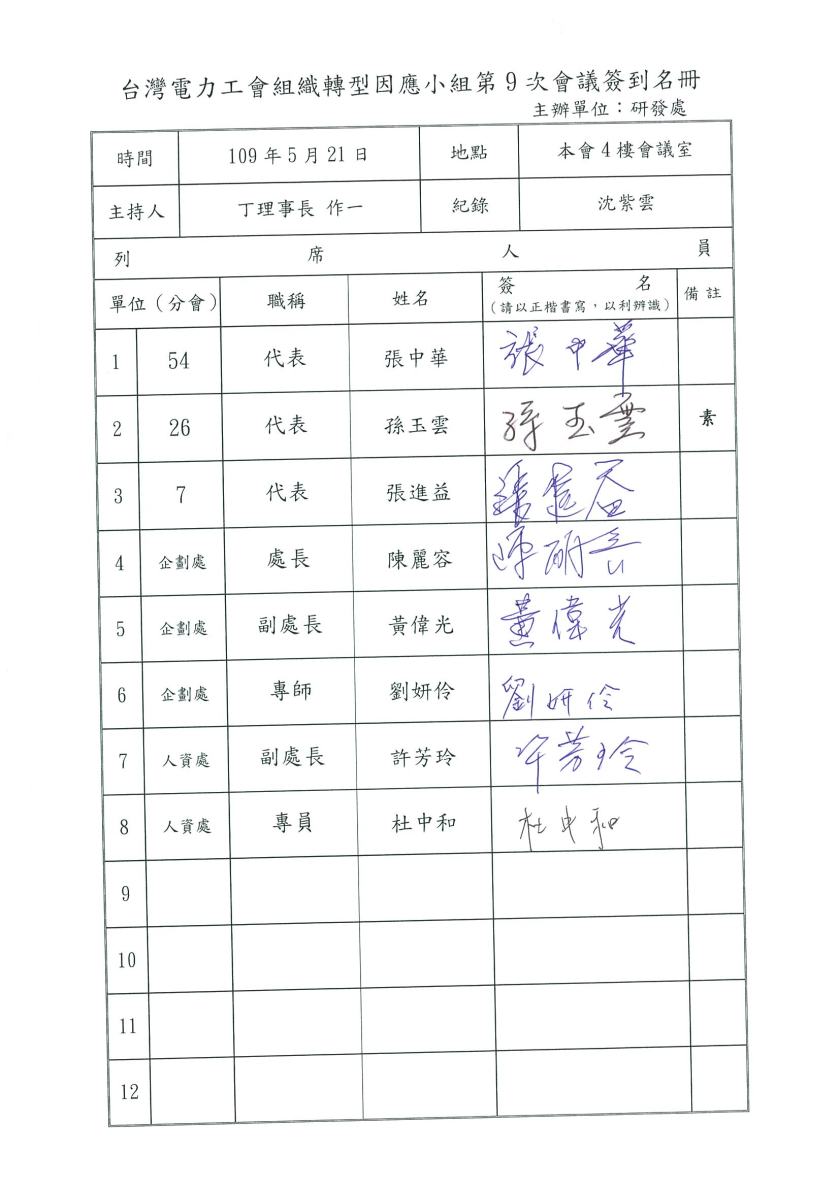 台灣電力工會組織轉型因應小組第9次會議簽到名冊
主辦單位：研發處
時間 109年5月21日 地點 本會4樓會議室
主持人 丁理事長 作一 紀錄 沈紫雲
列席人員
單位（分會） 職稱 姓名 簽名 備註
（請以正楷書寫，以利辨識）
1 54 代表 張中華 張中華
2 26 代表 孫玉雲 孫玉雲 素
3 7 代表 張進益 張進益
4 企劃處 處長 陳麗容 陳麗容
5 企劃處 副處長 黃偉光 黃偉光
6 企劃處 專師 劉妍伶 劉妍伶
7 人資處 副處長 許芳玲 許芳玲
8 人資處 專員 杜中和 杜中和
9
10
11
12